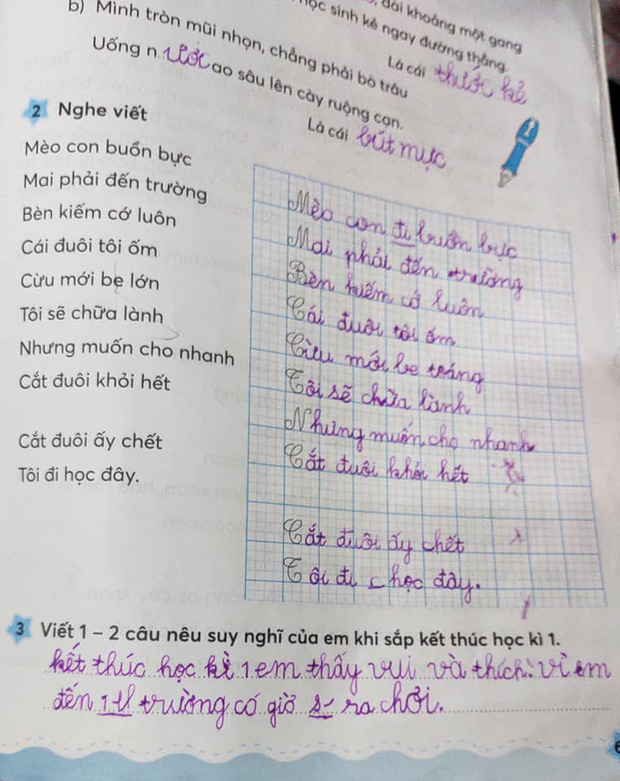 học sinh kẻ ngay đường thẳng.
dài khoảng một gang
Là cái thước kẻ
b) Mình tròn mũi nhọn, chẳng phải bò trâu
Uống nước ao sâu lên cày ruộng cạn.
Là cái bút mực
2 Nghe viết
Mèo con buồn bực
Mai phải đến trường
Bèn kiếm cớ luôn
Cái đuôi tôi ốm
Cừu mới be lớn
Tôi sẽ chữa lành
Nhưng muốn cho nhanh
Cắt đuôi khỏi hết
Cắt đuôi ấy chết
Tôi đi học đây.
Mèo con đi buồn bực
Mai phải đến trường
Bèn kiếm cớ luôn
Cái đuôi tôi ốm
Cừu mới be toáng
Tôi sẽ chữa lành
Nhưng muốn cho nhanh
Cắt đuôi khỏi hết
Cắt đuôi ấy chết
Tôi đi học đây.
3 Viết 1 - 2 câu nêu suy nghĩ của em khi sắp kết thúc học kì 1.
kết thúc học kì 1 em thấy vui và thích: vì em
đến trường có giờ ra chơi.